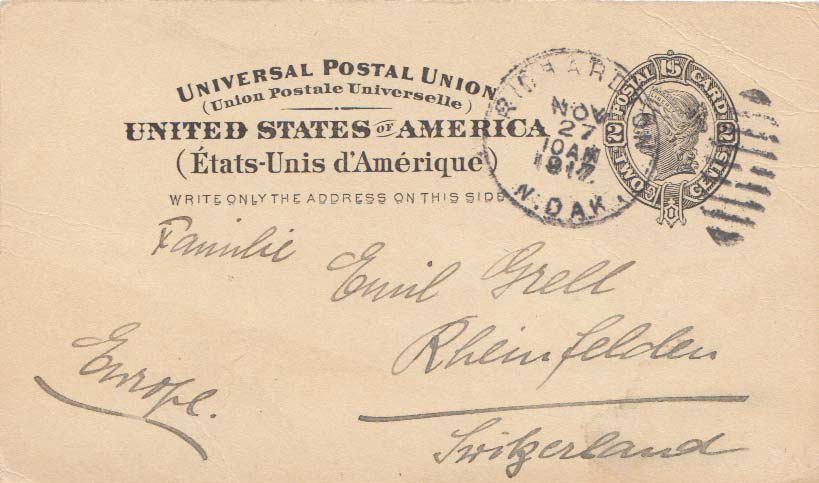 UNIVERSAL POSTAL UNION
(Union Postale Universelle)
UNITED STATES OF AMERICA
(États-Unis d'Amérique)
WRITE ONLY THE ADDRESS ON THIS SIDE
NOV
27
10 AM
1917
N. DAK.
POSTAL CARD
2 2
TWO CENTS
Familie
Emil Grell
Rheinfelden
Switzerland
Europe.